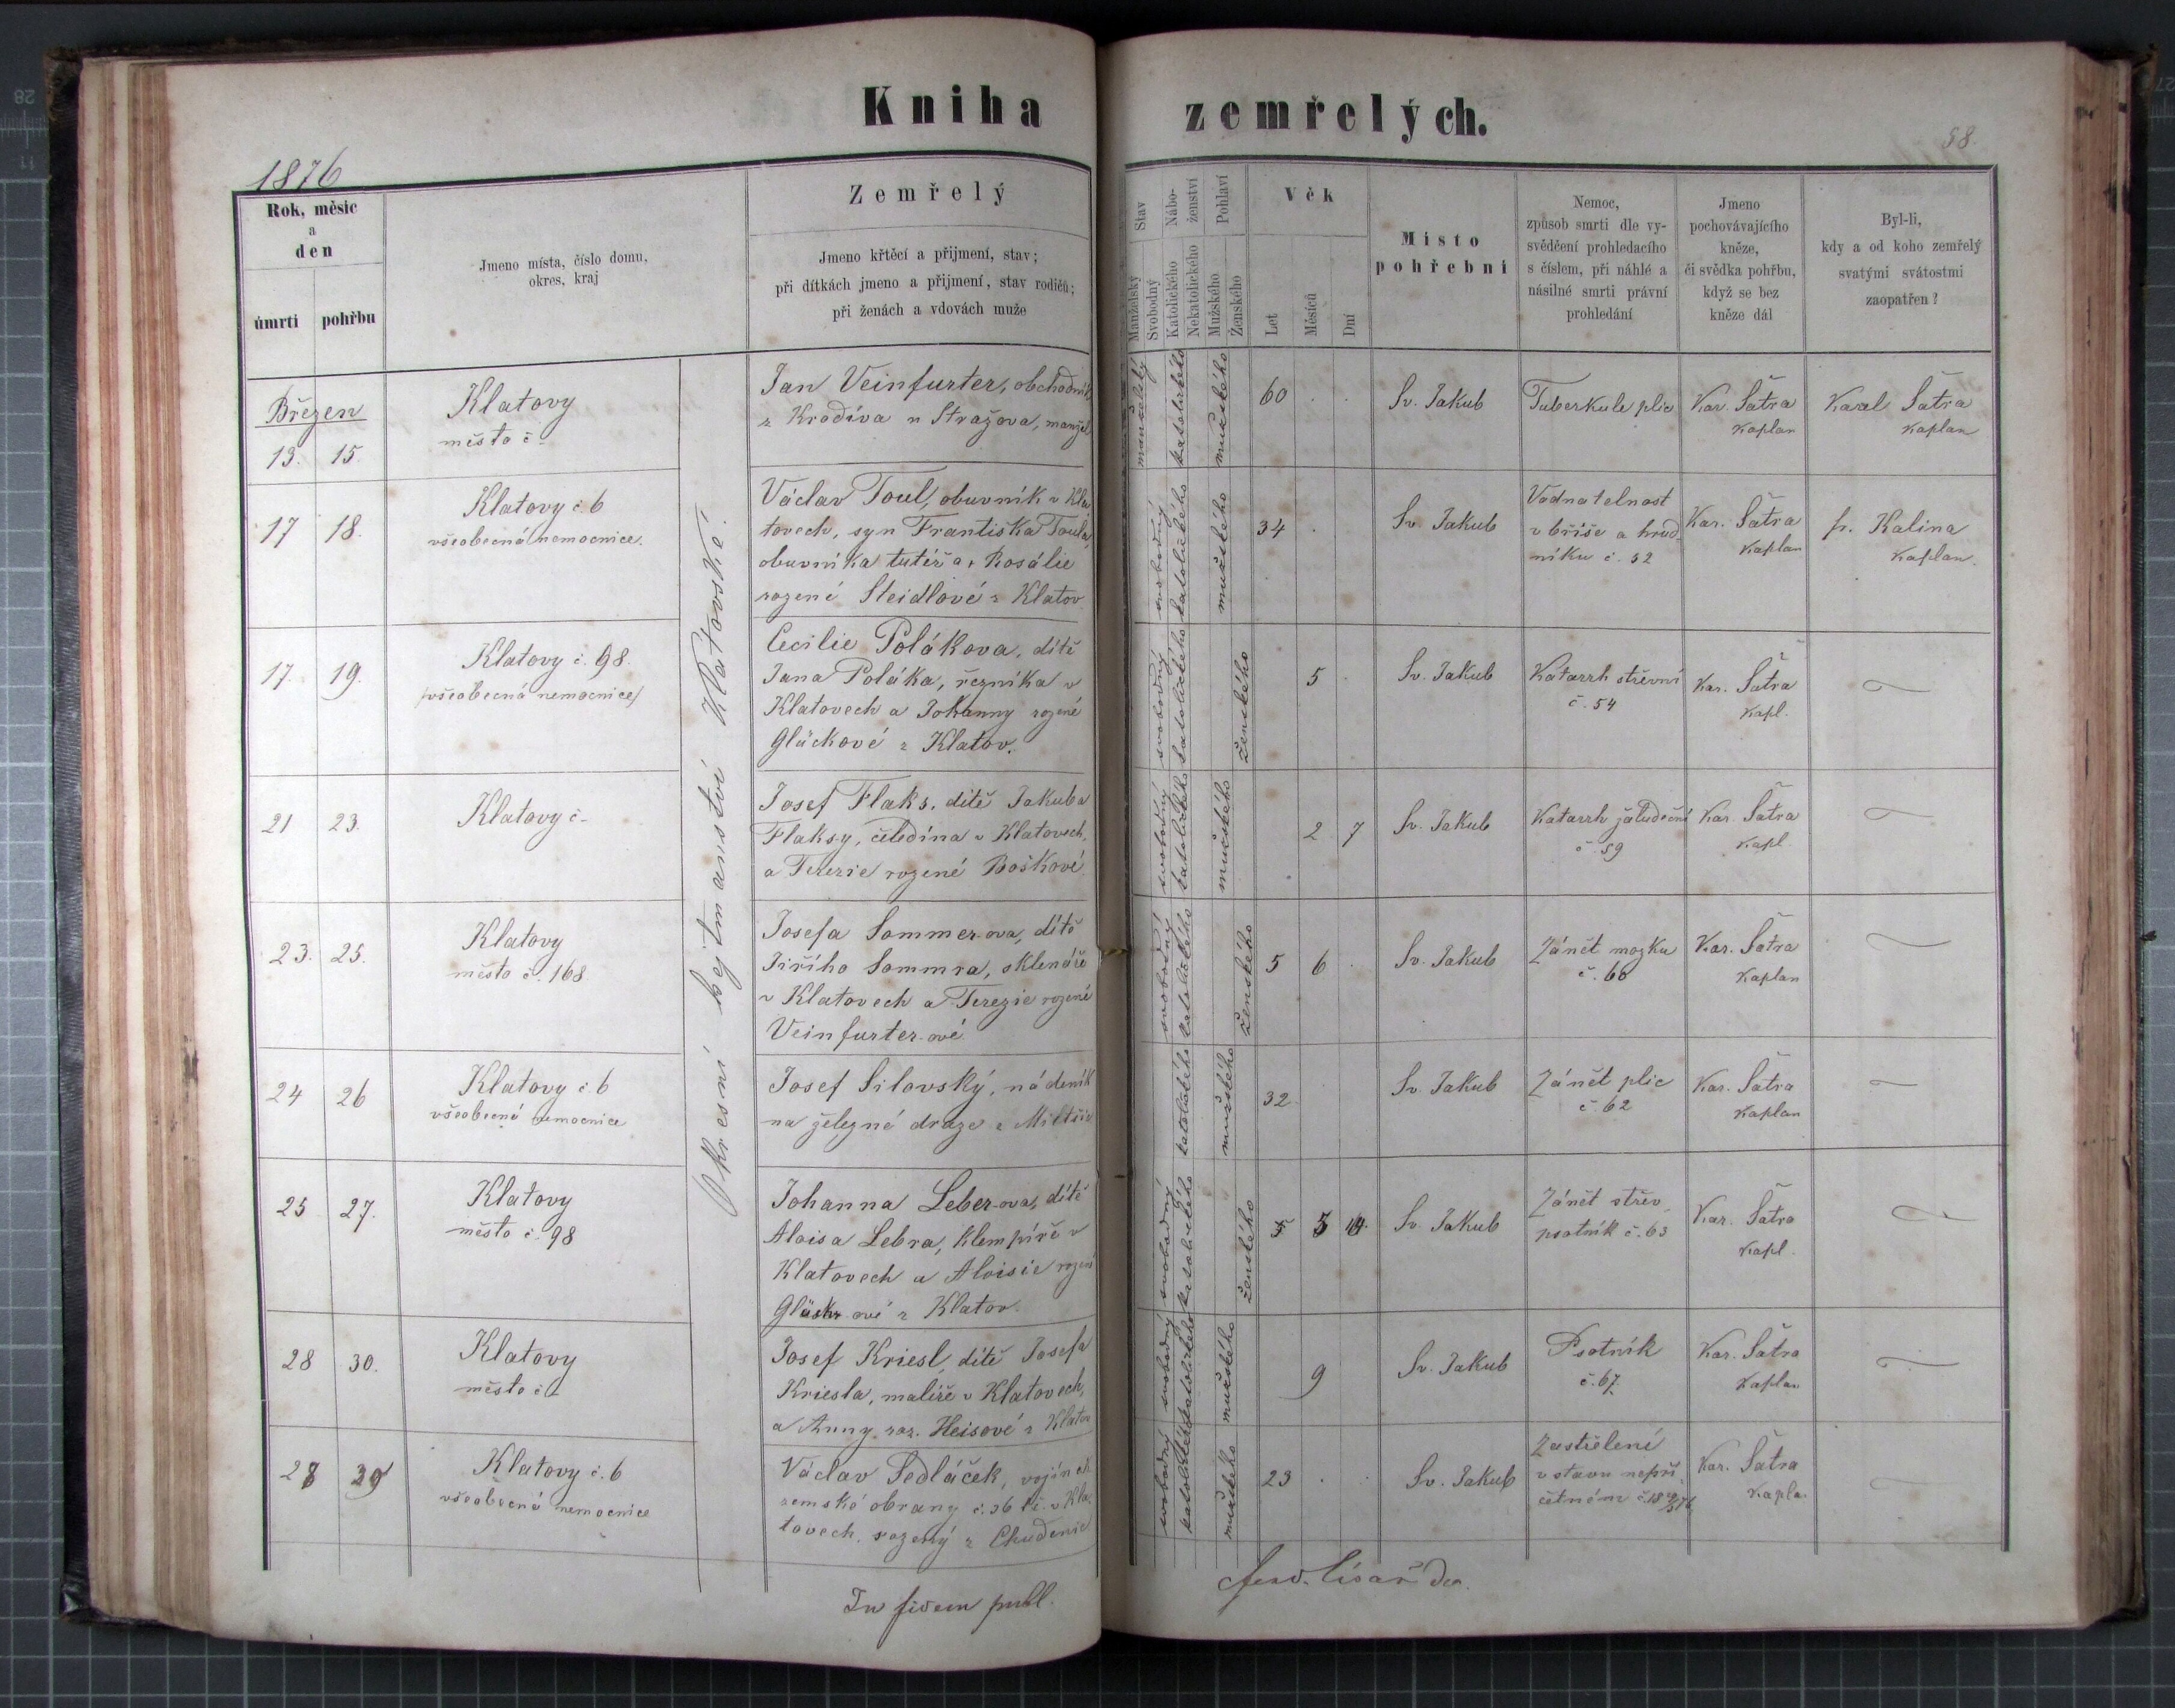 Kniha zemřelých.
1876
58.
Rok, měsíc
a
den
úmrtí
pohřbu
Jmeno místa, číslo domu,
okres, kraj
Zemřelý
Jmeno křtěcí a přijmení, stav;
při dítkách jmeno a přijmení, stav rodičů;
při ženách a vdovách muže
Stav
Manželský
Svobodný
Nábo-
ženství
Katolického
Nekatolického
Pohlaví
Mužského
Ženského
Věk
Let
Měsíců
Dní
Místo
pohřební
Nemoc,
způsob smrti dle vy-
svědčení prohledacího
s číslem, při náhlé a
násilné smrti právní
prohledání
Jmeno
pochovávajícího
kněze,
či svědka pohřbu,
když se bez
kněze dál
Byl-li,
kdy a od koho zemřelý
svatými svátostmi
zaopatřen?
Okresní hejtmanství Klatovské.
Březen
13. 15.
Klatovy
město č
Jan Veinfurter, obchodník
z Kradiva u Stražova, manžel
manželský katolického mužského
60 . .
Sv. Jakub
Tuberkule plic
Kar. Šatra
Kaplan
Karel Šatra
Kaplan
17 18.
Klatovy č 6
všeobecná nemocnice.
Václav Toul, obuvník v Kla
tovech, syn Františka Toula,
obuvníka tutéž a + Rosálie
rozené Steidlové z Klatov
svobodný katolického mužského
34 .
Sv. Jakub
Vodnatelnost
v břiše a hrud
níku č. 52
Kar. Šatra
Kaplan
p. Kalina
Kaplan.
17. 19.
Klatovy č. 98.
/všeobecná nemocnice/
Cecilie Polákova, dítě
Jana Poláka, řezníka v
Klatovech a Johanny rozené
Glückové z Klatov.
svobodný katolického ženského
5 .
Sv. Jakub
Katarrh střevní
č. 54
Kar. Šatra
Kapl.
21 23.
Klatovy č-
Josef Flaks, dítě Jakuba
Flaksy, čeledína v Klatovech,
a Terezie rozené Boškové
svobodný katolického mužského
2 7
Sv. Jakub
Katarrh žaludeční
č. 59
Kar. Šatra
Kapl.
23. 25.
Klatovy
město č. 168
Josefa Sommer-ova, dítě
Jiřího Sommra, sklenáře
v Klatovech a Terezie rozené
Veinfurter-ové
svobodný katolického ženského
5 6 .
Sv. Jakub
Zánět mozku
č. 60
Kar. Šatra
Kaplan
24 26
Klatovy č 6
všeobecná nemocnice
Josef Silovský, nádeník
na železné dráze z
katolického mužského
32
Sv. Jakub
Zánět plic
č. 62
Kar. Šatra
Kaplan
25 27.
Klatovy
město č. 98
Johanna Leber-ova, dítě
Aloisa Lebra, klempíře v
Klatovech a Aloisie rozené
ové z Klatov.
svobodný katolického ženského
5
Sv. Jakub
Zánět střev
psotník č. 63
Kar. Šatra
Kapl.
28 30.
Klatovy
město č -
Josef Kriesl, dítě Josefa
Kriesla, malíře v Klatovech,
a Anny roz. Heisové z Klatov
svobodný katolického mužského
9
Sv. Jakub
Psotník
č. 67.
Kar. Šatra
Kaplan
28
Klatovy č. 6
všeobecná nemocnice
Václav Sedláček, vojín ck
zemské obrany č. 36 v Kla
tovech, rozený z Chudenic
svobodný katolického mužského
23 . .
Sv. Jakub
Zastřelení
v stavu nepří
četném
Kar. Šatra
Kapla.
In fidem publ.